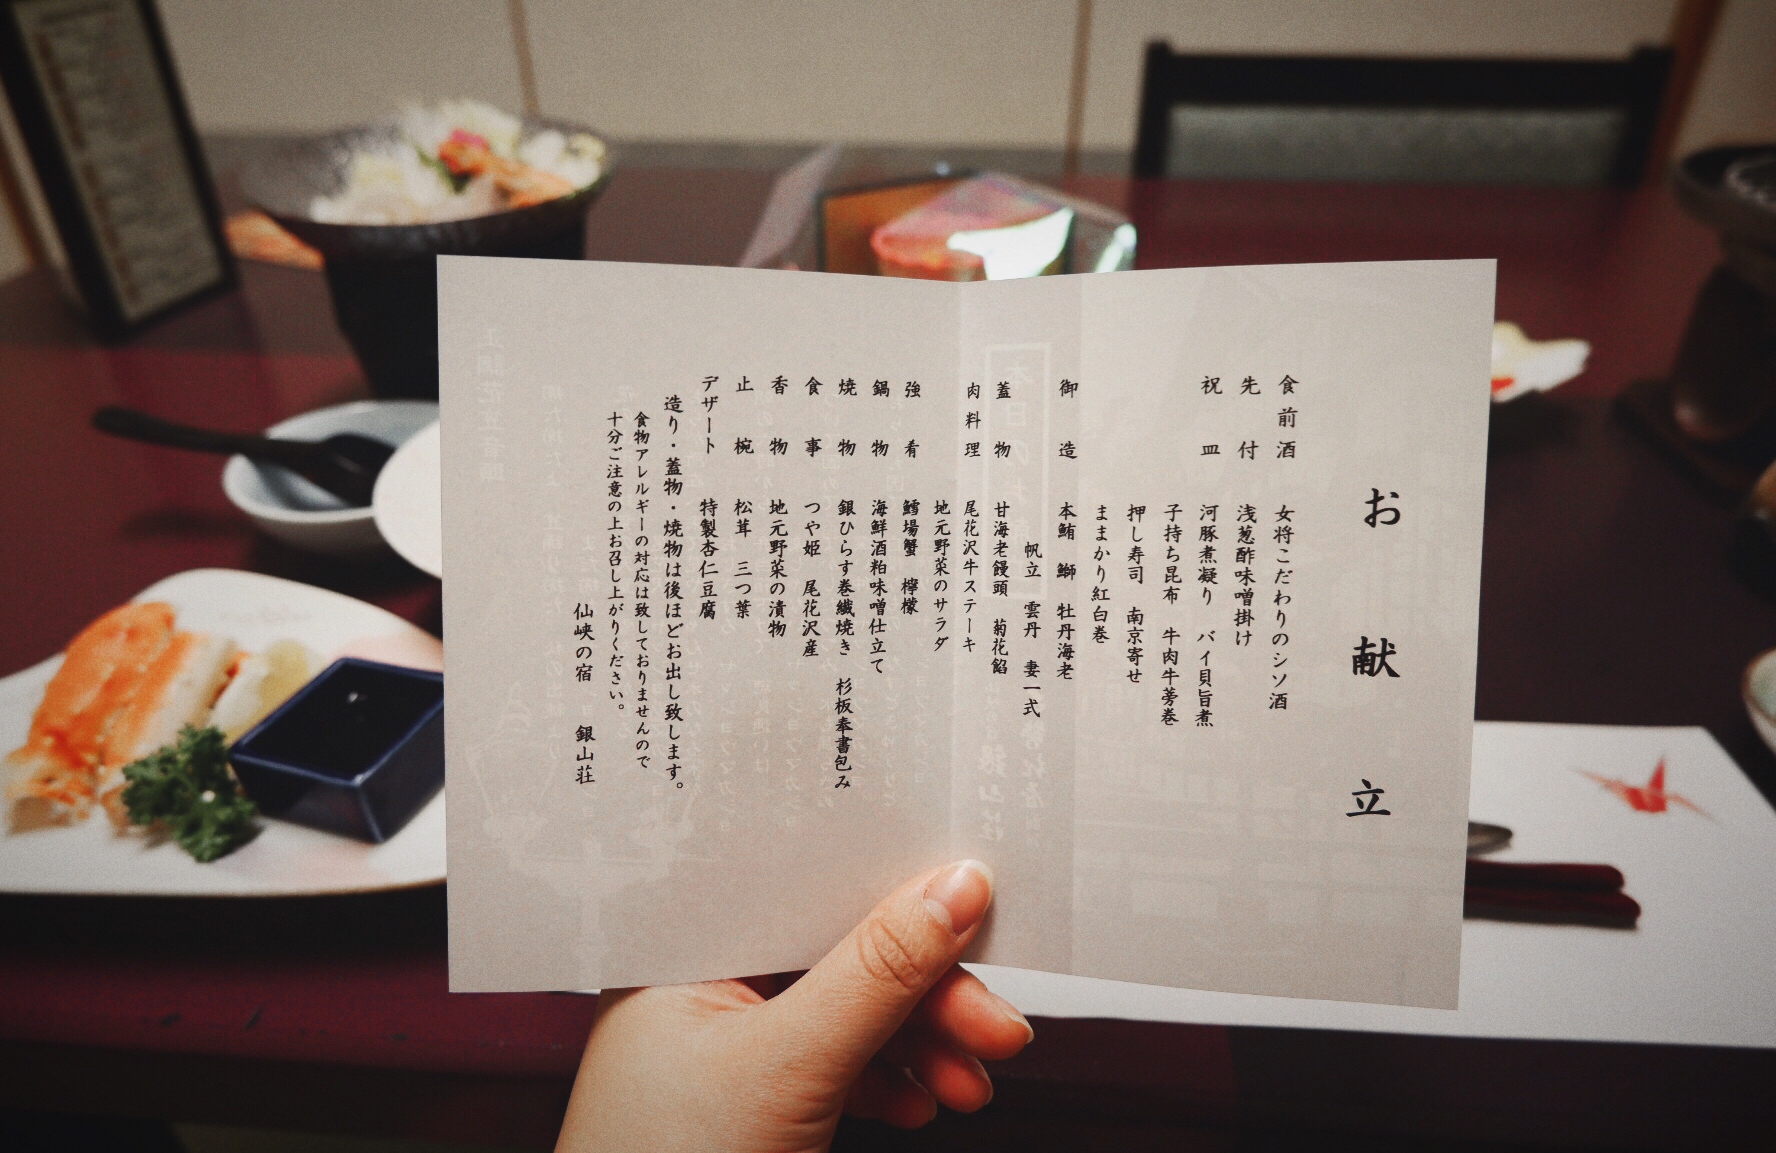 お献立
食前酒 女将こだわりのシソ酒
先付 浅葱酢味噌掛け
祝皿 河豚煮凝り バイ貝旨煮
子持ち昆布 牛肉牛蒡巻
押し寿司 南京寄せ
ままかり紅白巻
御造 本鮪 鰤 牡丹海老
帆立 雲丹 妻一式
蓋物 甘海老饅頭 菊花餡
肉料理 尾花沢牛ステーキ
地元野菜のサラダ
強肴 鱈場蟹 檸檬
鍋物 海鮮酒粕味噌仕立て
焼物 銀ひらす巻繊焼き 杉板奉書包み
食事 つや姫 尾花沢産
香物 地元野菜の漬物
止椀 松茸 三つ葉
デザート 特製杏仁豆腐
造り・蓋物・焼物は後ほどお出し致します。
食物アレルギーの対応は致しておりませんので
十分ご注意の上お召し上がりください。
仙峡の宿 銀山荘